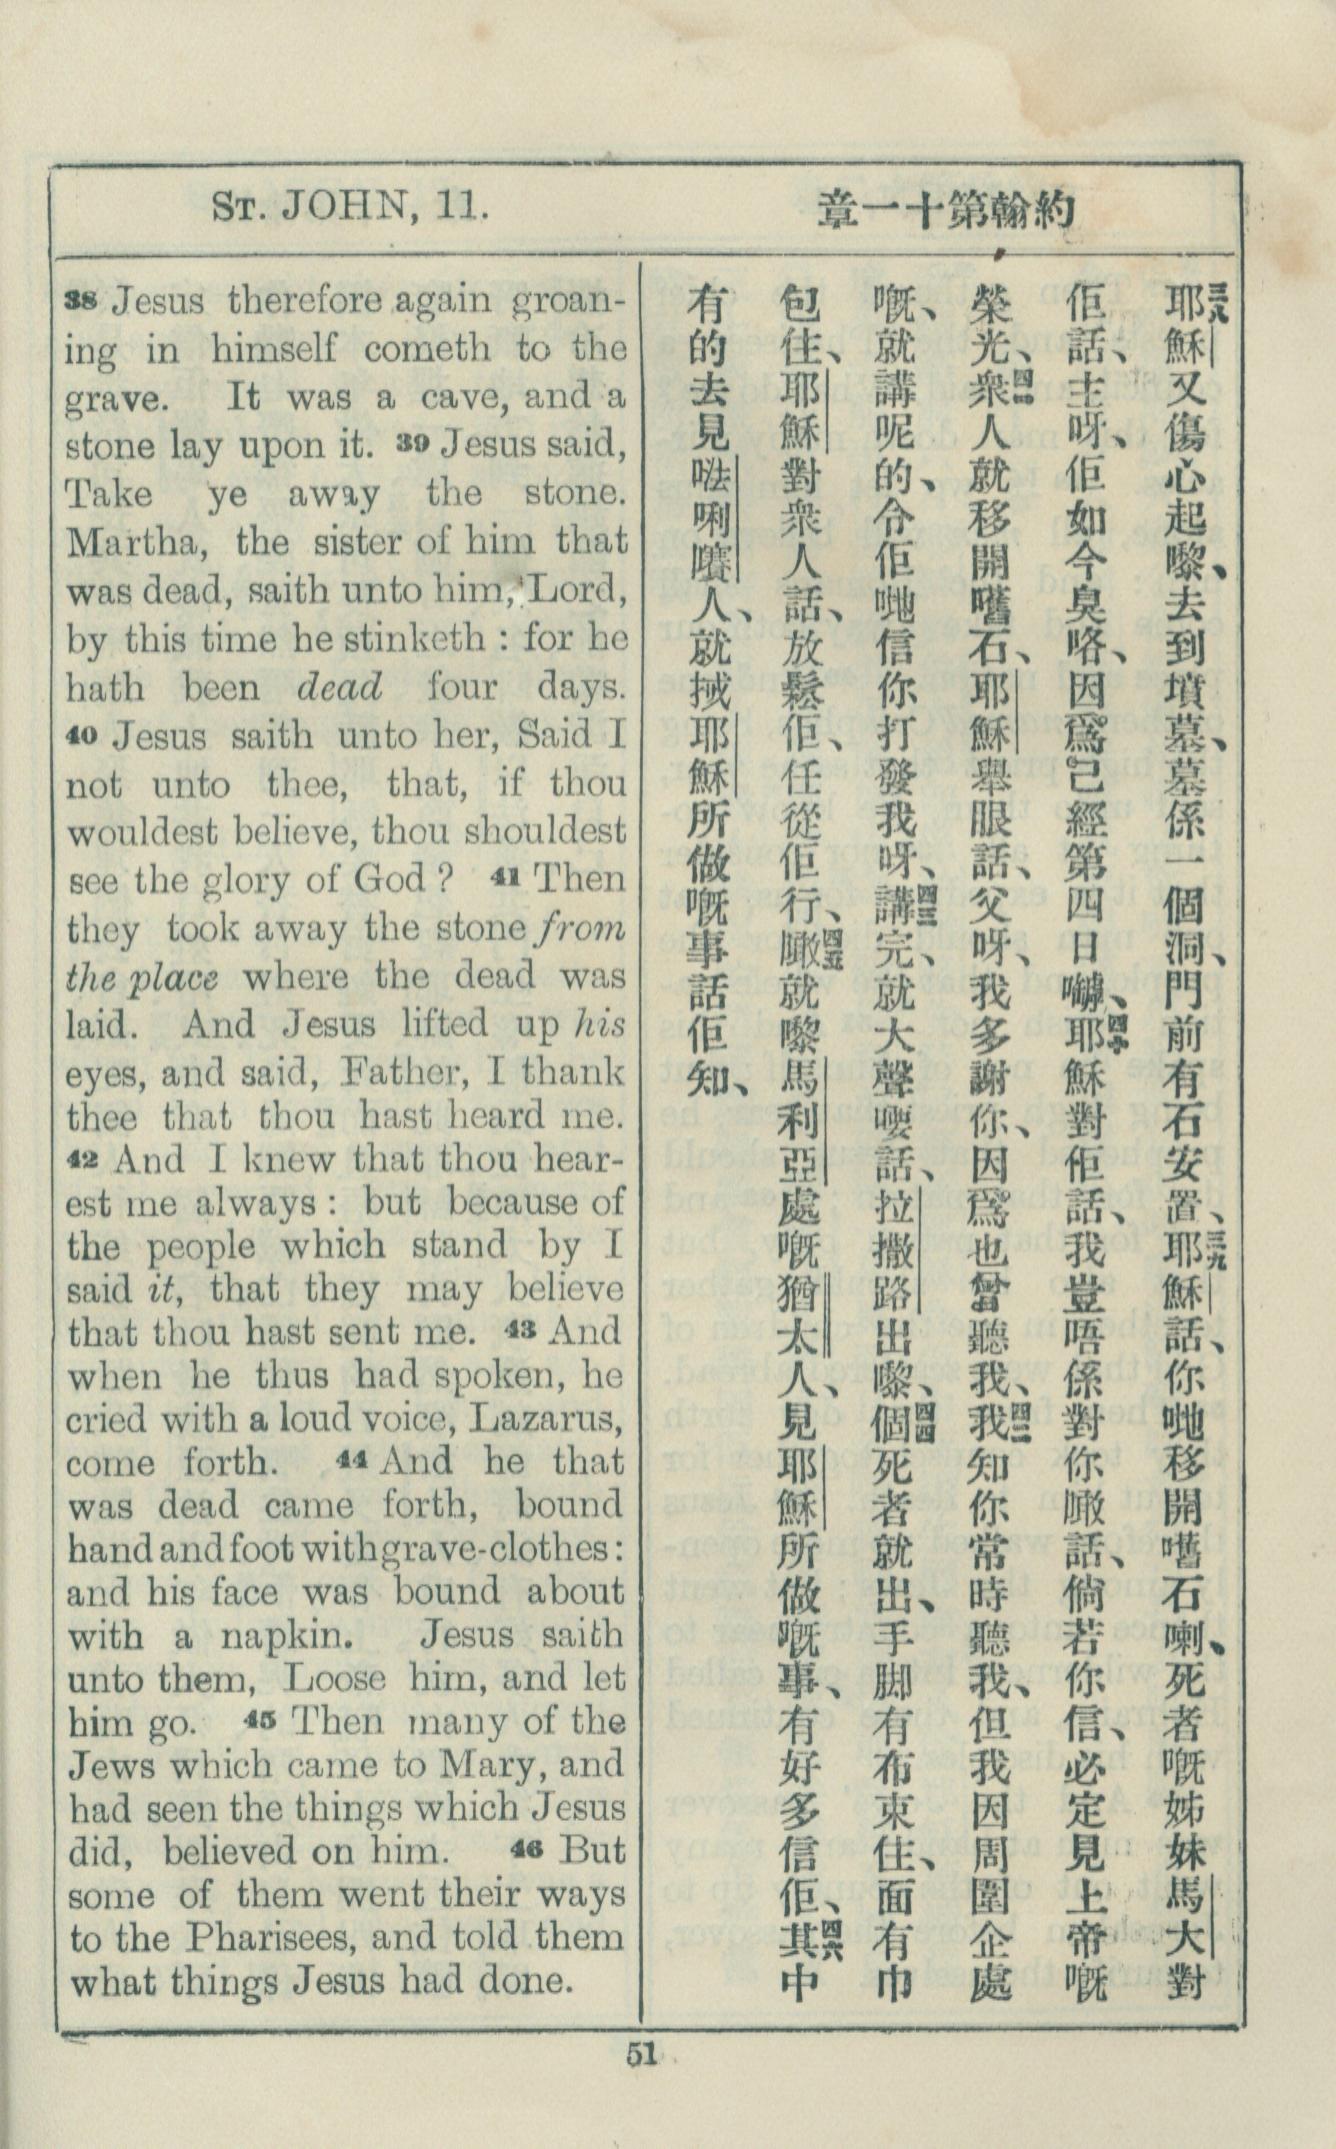 ST. JOHN, 11.
約翰第十一章
38 Jesus therefore again groan-
ing in himself cometh to the
grave. It was a cave, and a
stone lay upon it. 39 Jesus said,
Take ye away the stone.
Martha, the sister of him that
was dead, saith unto him, Lord,
by this time he stinketh : for he
hath been dead four days.
40 Jesus saith unto her, Said I
not unto thee, that, if thou
wouldest believe, thou shouldest
see the glory of God ? 41 Then
they took away the stone from
the place where the dead was
laid. And Jesus lifted up his
eyes, and said, Father, I thank
thee that thou hast heard me.
42 And I knew that thou hear-
est me always : but because of
the people which stand by I
said it, that they may believe
that thou hast sent me. 43 And
when he thus had spoken, he
cried with a loud voice, Lazarus,
come forth. 44 And he that
was dead came forth, bound
hand and foot with grave-clothes :
and his face was bound about
with a napkin. Jesus saith
unto them, Loose him, and let
him go. 45 Then many of the
Jews which came to Mary, and
had seen the things which Jesus
did, believed on him. 46 But
some of them went their ways
to the Pharisees, and told them
what things Jesus had done.
三八耶穌又傷心起嚟、去到墳墓、墓係一個洞、門前有石安置、三九耶穌話、你哋移開嗜石喇、死者嘅姊妹馬大對
佢話、主呀、佢如今臭咯、因爲已經第四日嚹、四十耶穌對佢話、我豈唔係對你㬹話、倘若你信、必定見上帝嘅
榮光、四一衆人就移開嗜石、耶穌舉眼話、父呀、我多謝你、因爲也曾聽我、四二我知你常時聽我、但我因周圍企處
嘅、就講呢的、令佢哋信你打發我呀、四三講完、就大聲嘤話、拉撒路出嚟、四四個死者就出、手脚有布束住、面有巾
包住、耶穌對衆人話、放鬆佢、任從佢行、四五㬹就嚟馬利亞處嘅猶太人、見耶穌所做嘅事、有好多信佢、四六其中
有的去見𠵽唎㘔人、就搣耶穌所做嘅事話佢知、
51